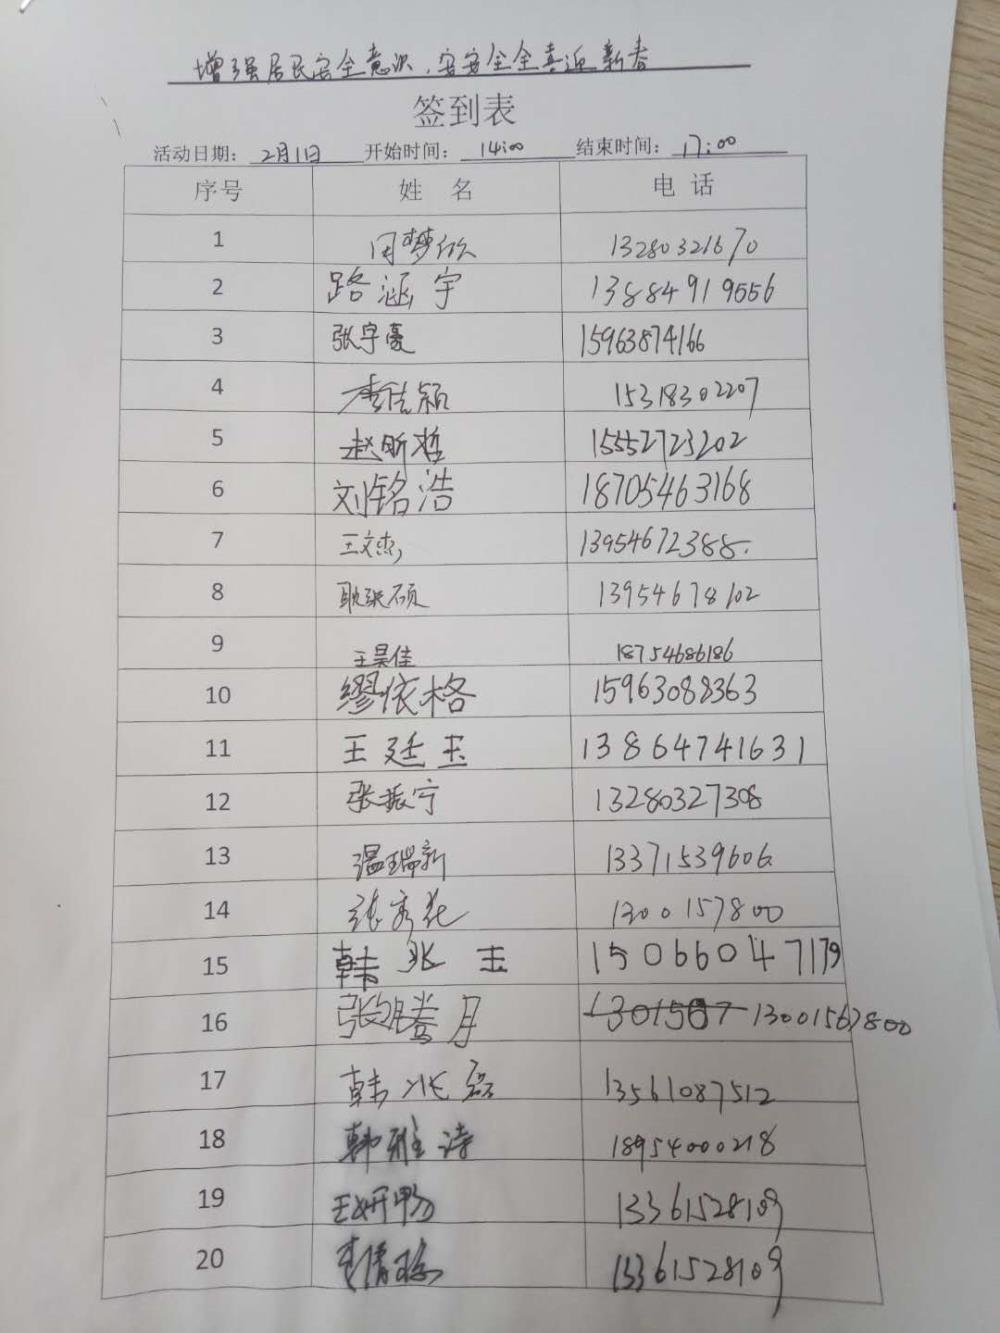 增强居民安全意识,安安全全喜迎新春
签到表
活动日期: 2月1日 开始时间: 14:00 结束时间: 17:00
序号 姓 名 电 话
1 周梦欣 13280321670
2 路涵宇 13884919556
3 张宇豪 15963874166
4 李佳颖 15318302207
5 赵昕哲 15552723202
6 刘铭浩 18705463168
7 王文杰 13954672388
8 耿张硕 13954678102
9 王昊佳 18754686186
10 缪依格 15963088363
11 王廷玉 13864741631
12 张振宁 13280327308
13 温瑞新 13371539606
14 张秀花 1300157800
15 韩兆玉 15066047179
16 张腾月 1301567 13001567800
17 韩兆磊 13561087512
18 韩雅诗 18954000218
19 王妍畅 13361528109
20 李倩 13361528109